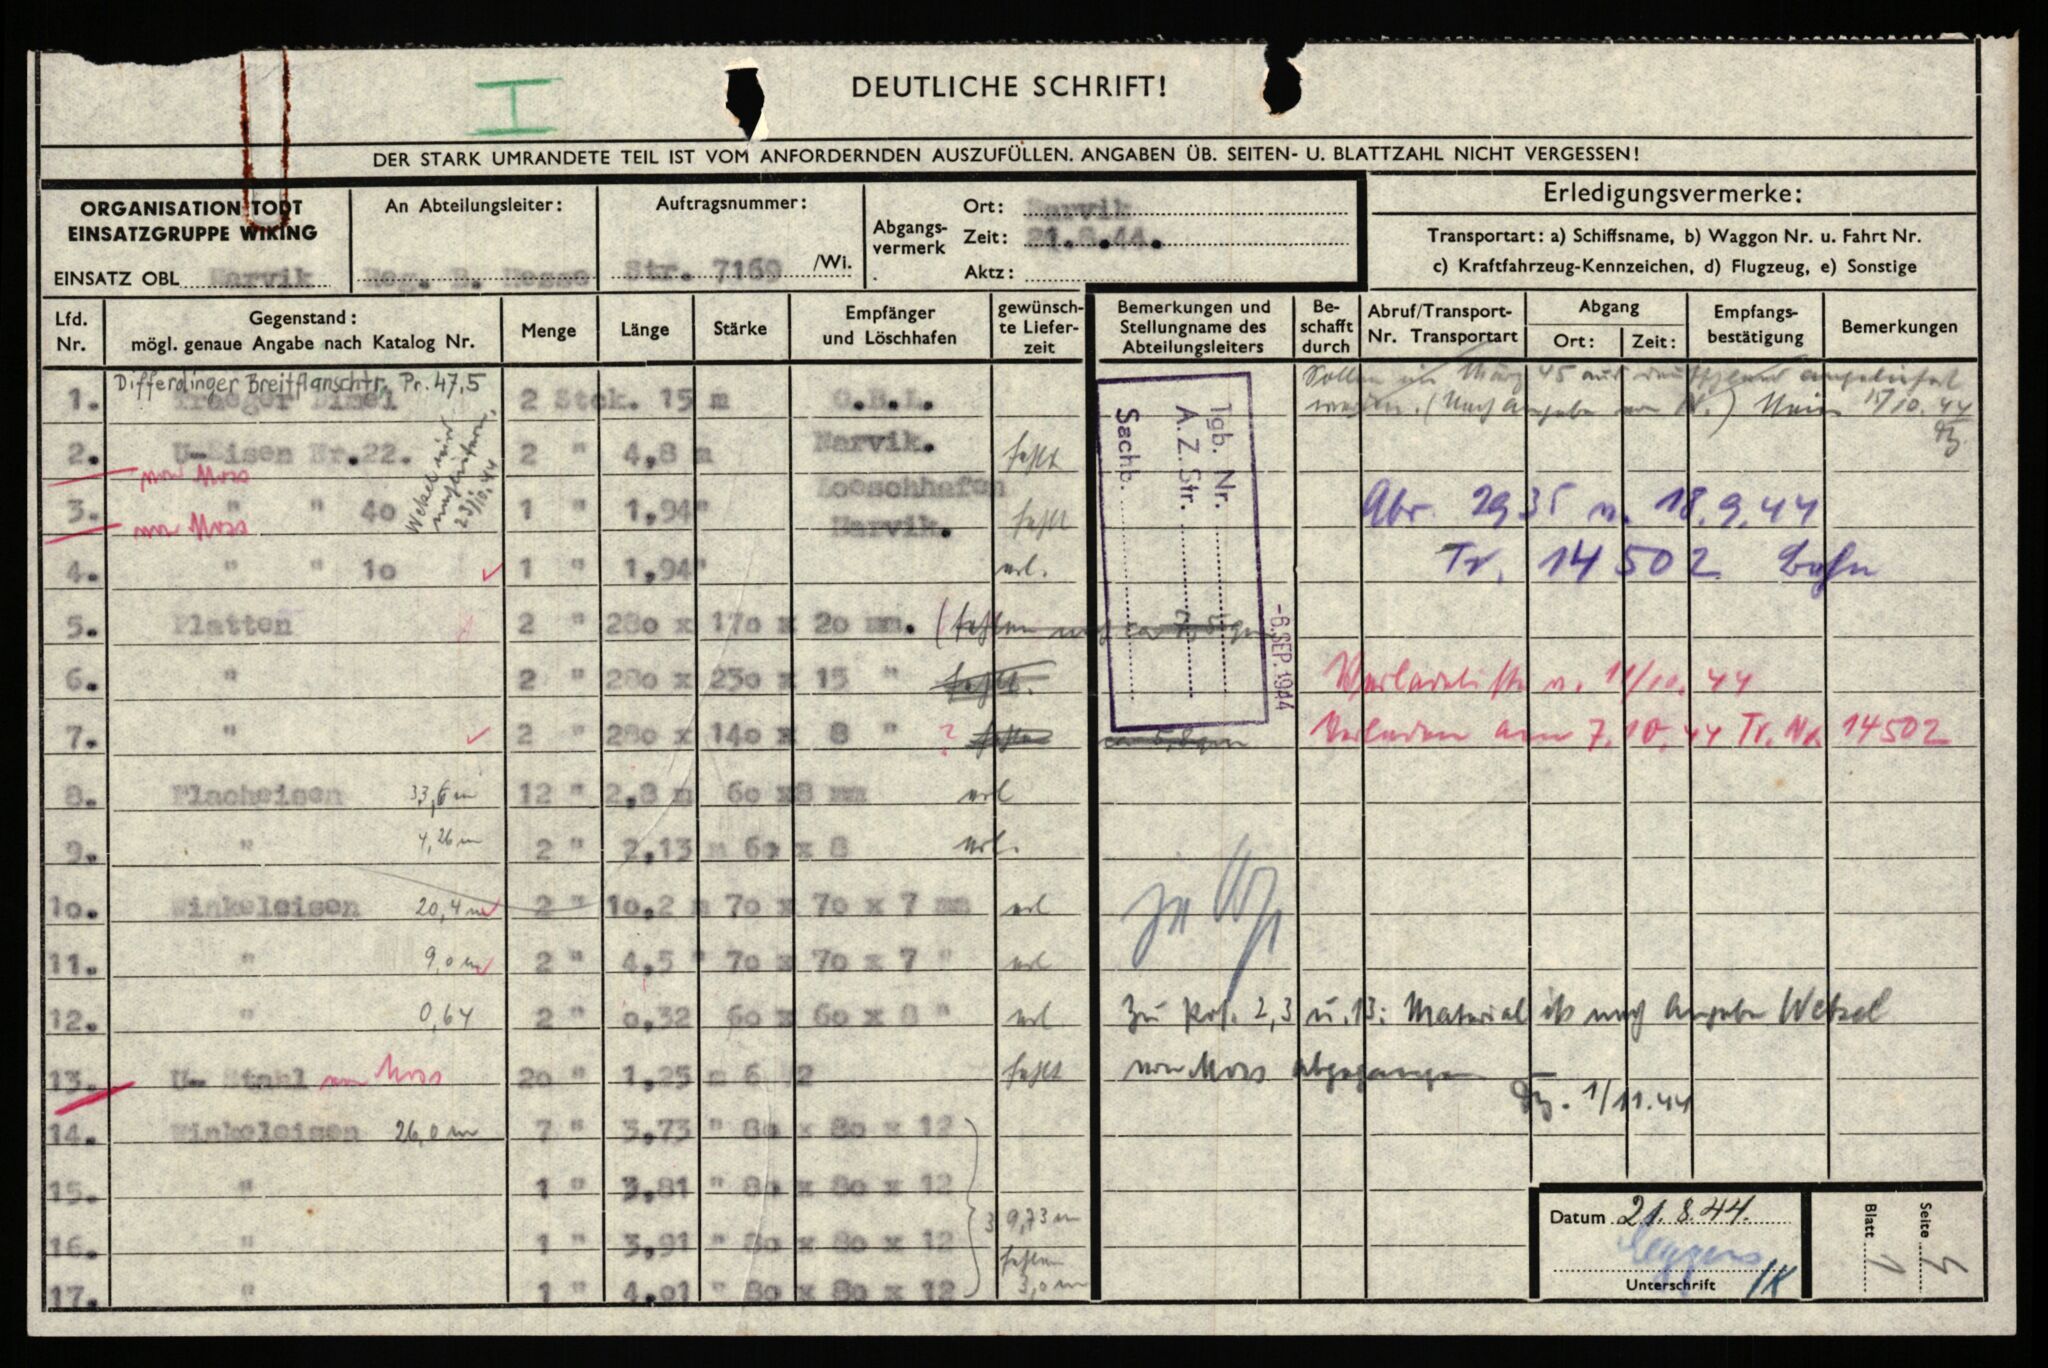 I
DEUTLICHE SCHRIFT!
DER STARK UMRANDETE TEIL IST VOM ANFORDERNDEN AUSZUFÜLLEN. ANGABEN ÜB. SEITEN- U. BLATTZAHL NICHT VERGESSEN!
ORGANISATION TODT
EINSATZGRUPPE WIKING
EINSATZ OBL Narvik
An Abteilungsleiter:
Reg. B. Hesse
Auftragsnummer:
Str. 7169 /Wi.
Abgangs-
vermerk
Ort: Narvik
Zeit: 21.8.44.
Aktz:
Erledigungsvermerke:
Transportart: a) Schiffsname, b) Waggon Nr. u. Fahrt Nr.
c) Kraftfahrzeug-Kennzeichen, d) Flugzeug, e) Sonstige
Lfd. Nr.
Gegenstand:
mögl. genaue Angabe nach Katalog Nr.
Menge
Länge
Stärke
Empfänger
und Löschhafen
gewünsch-
te Liefer-
zeit
Bemerkungen und
Stellungname des
Abteilungsleiters
Be-
schafft
durch
Abruf/Transport-
Nr. Transportart
Abgang
Ort:
Zeit:
Empfangs-
bestätigung
Bemerkungen
Differdinger Breitflanschtr. Pr. 47,5
1. Traeger Dimel 2 Stck. 15 m O.B.L.
15/10.44
2. U-Eisen Nr.22. 2 " 4,8 m Narvik. fehlt
von Moss
Loeschhafen
3. " " 40 1 " 1,94" Narvik. fehlt
von Moss
23/10.44
Abr. 2935 v. 18.9.44
4. " " 10 1 " 1,94" erl.
Tr. 14502 Bahn
5. Platten 2 " 280 x 170 x 20 mm. (fehlen noch ca
6. " 2 " 280 x 230 x 15 " fehlt.
Verladeliste v. 11/10.44
7. " 2 " 280 x 140 x 8 " ?
Verladen am 7.10.44 Tr. Nr. 14502
8. Flacheisen 33,6 m 12 " 2,8 m 60 x8 mm erl
9. " 4,26 m 2 " 2,13 m 60 x 8 erl.
10. Winkeleisen 20,4 m 2 " 10,2 m 70 x 70 x 7 mm erl
11. " 9,0 m 2 " 4,5 " 70 x 70 x 7 " erl
12. " 0,64 2 " 0,32 60 x 60 x 8 " erl
Zu Pos. 2,3 u. 13: Material ist nach Angabe Wetzel
13. U- Stahl von Moss 20 " 1,25 m 6 2 fehlt
von Moss abgegangen
1/11.44
14. Winkeleisen 26,0 m 7 " 3,73 " 80 x 80 x 12
15. " 1 " 3,81 " 80 x 80 x 12
39,73 m
16. " 1 " 3,91 " 80 x 80 x 12
fehlen
17. " 1 " 4,01 " 80 x 80 x 12
3,0 m
Tgb. Nr.
A.Z. Str.
Sachb.
-6. SEP. 1944
Datum 21.8.44.
Unterschrift
Blatt
Seite